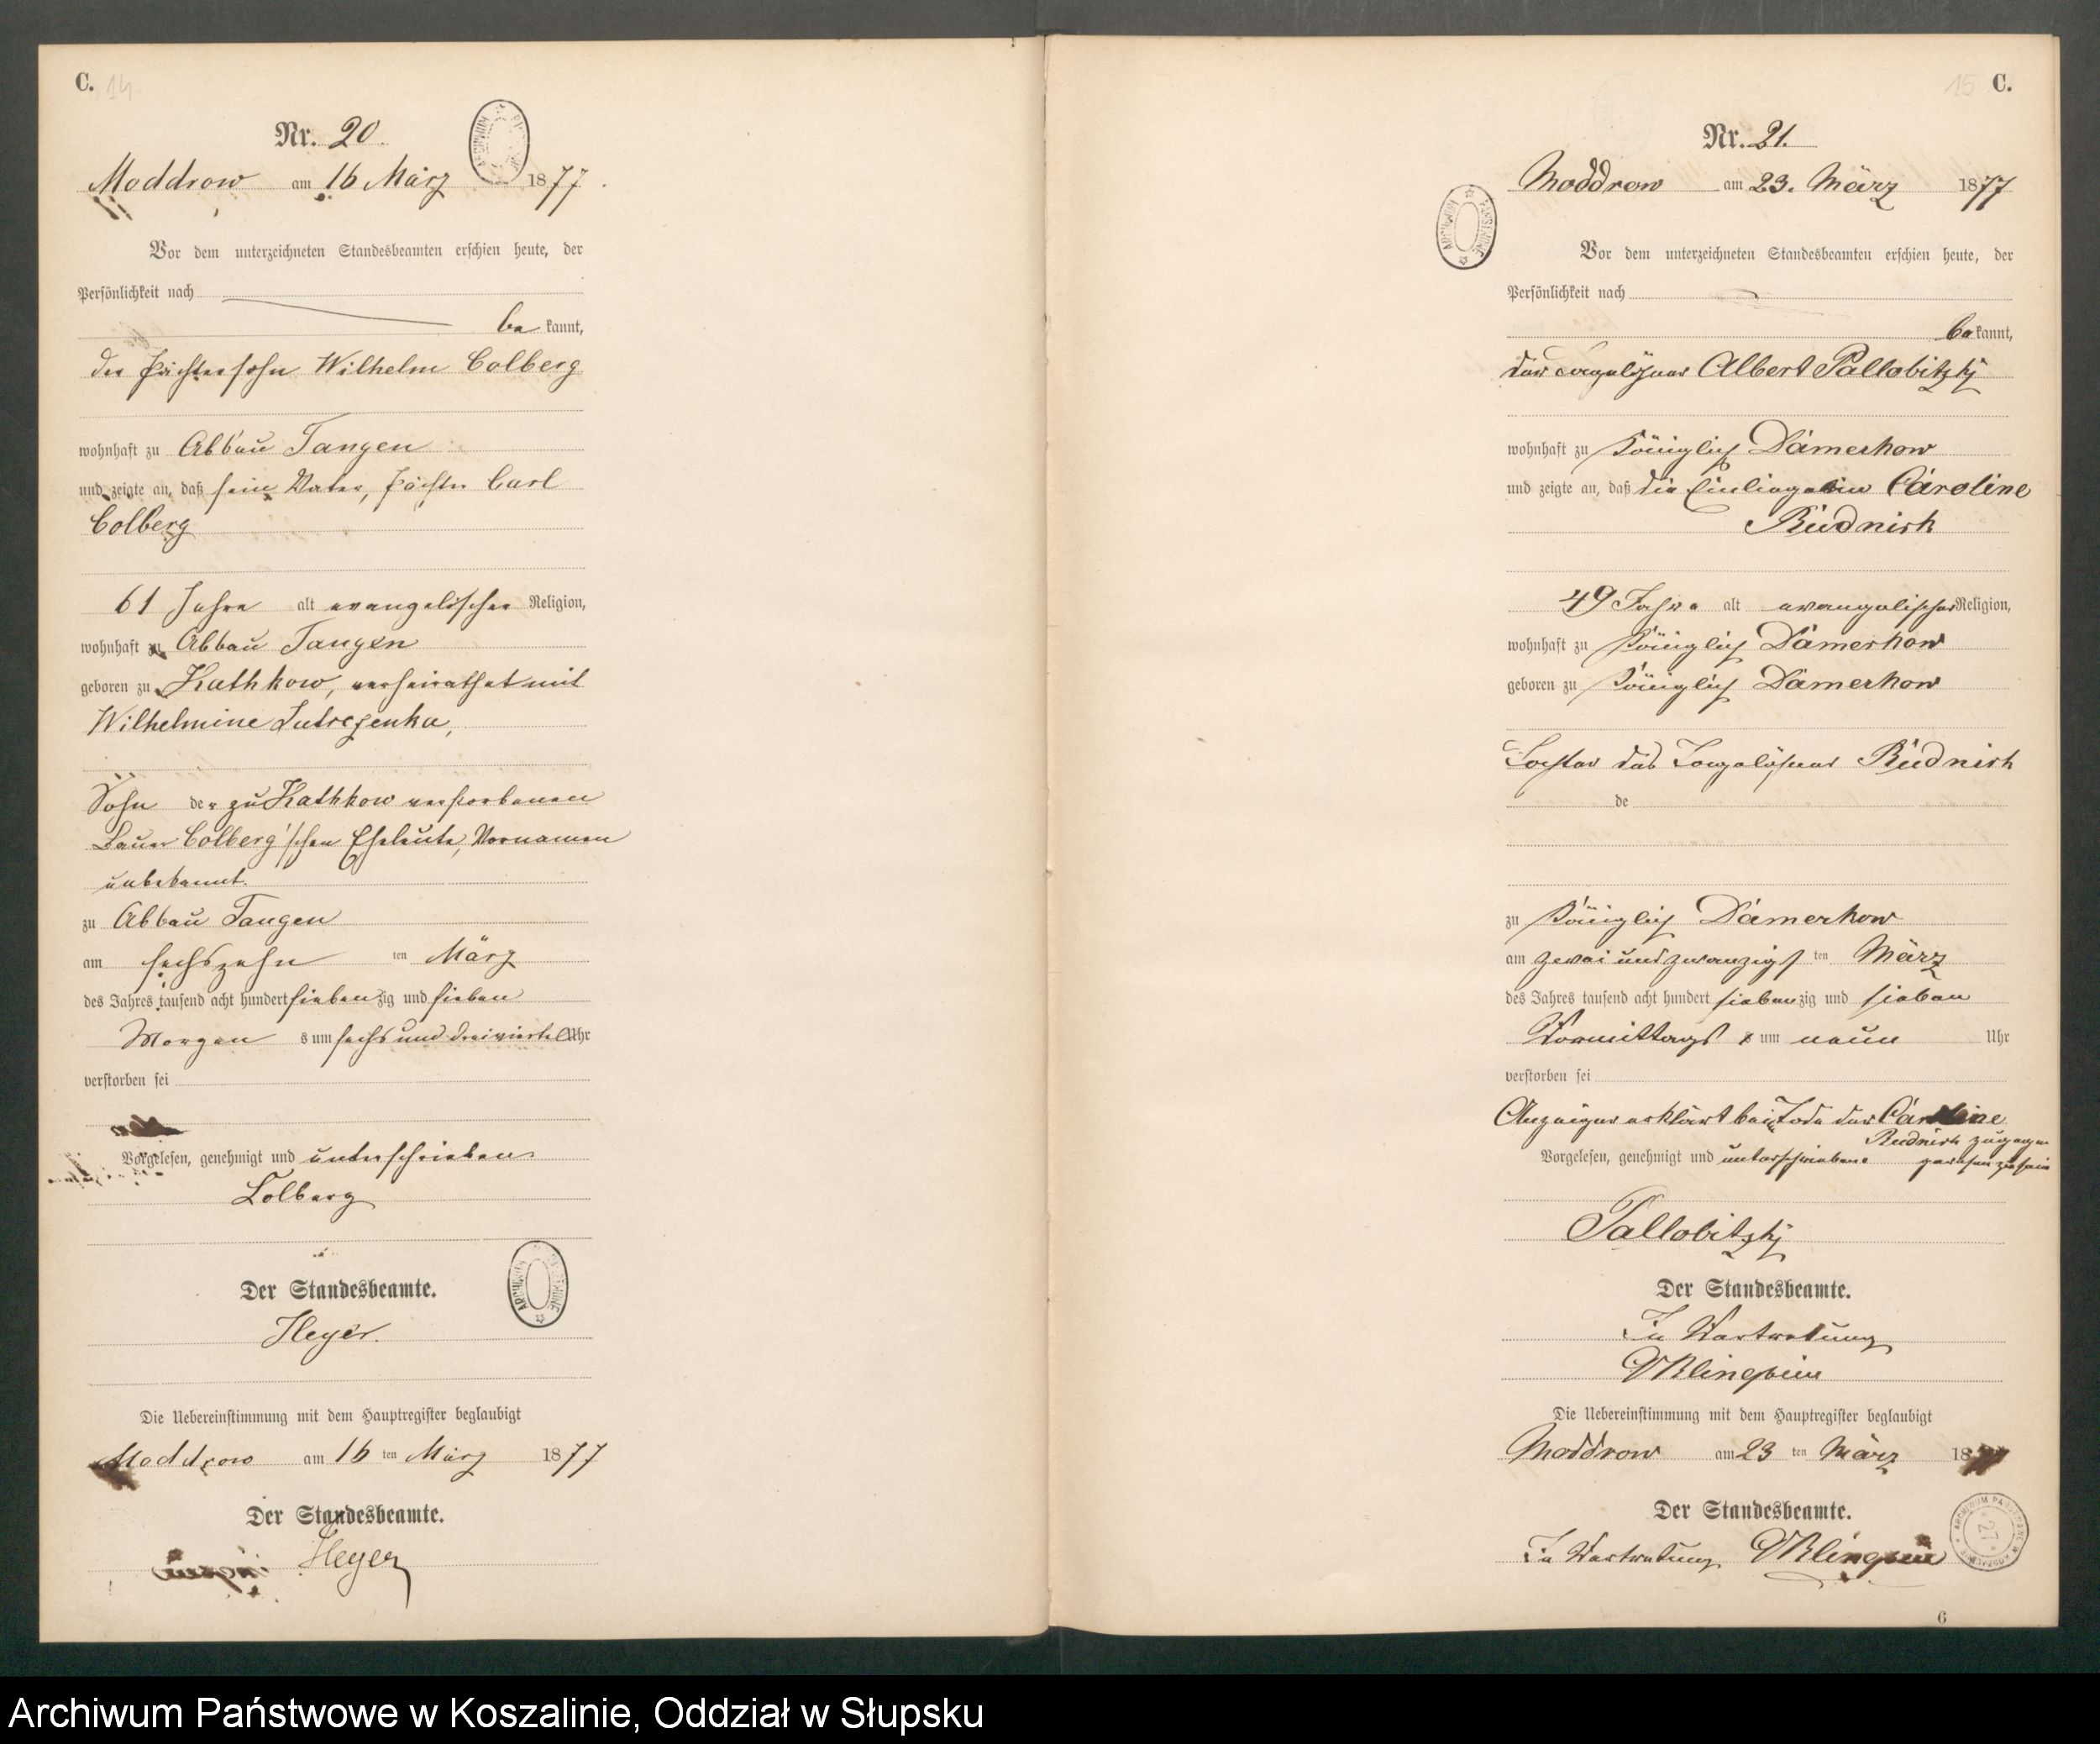 C. 14
Nr. 20
Moddrow am 16 März 1877
Vor dem unterzeichneten Standesbeamten erschien heute, der
Persönlichkeit nach
be kannt,
der Pächtersohn Wilhelm Colberg
wohnhaft zu Abbau Tangen
und zeigte an, daß sein Vater, Pächter Carl
Colberg
61 Jahre alt evangelischer Religion,
wohnhaft zu Abbau Tangen
geboren zu Kathkow, verheirathet mit
Wilhelmine
Sohn der zu Kathkow verstorbenen
Bauer Colberg'schen Eheleute, Vornamen
unbekannt.
zu Abbau Tangen
am sechszehn ten März
des Jahres tausend acht hundert sieben zig und sieben
Morgen s um sechs und dreiviertel Uhr
verstorben sei
Vorgelesen, genehmigt und unterschrieben
Colberg
Der Standesbeamte.
Heyer.
Die Uebereinstimmung mit dem Hauptregister beglaubigt
Moddrow am 16 ten März 1877
Der Standesbeamte.
Heyer
15 C.
Nr. 21.
Moddrow am 23. März 1877
Vor dem unterzeichneten Standesbeamten erschien heute, der
Persönlichkeit nach
be kannt,
der Albert Pallobitzky
wohnhaft zu Königlich Damerkow
und zeigte an, daß die Einliegerin Caroline
Rudnick
49 Jahre alt evangelischer Religion,
wohnhaft zu Königlich Damerkow
geboren zu Königlich Damerkow
Tochter des Tagelöhner Rudnick
de
zu Königlich Damerkow
am zwei und zwanzigs ten März
des Jahres tausend acht hundert sieben zig und sieben
Vormittags s um neun Uhr
verstorben sei
Anzeiger erklärt bei Tode der Caroline
Rudnick zugegen
Vorgelesen, genehmigt und unterschrieben gewesen zu sein
Pallobitzky
Der Standesbeamte.
In Vertretung
Die Uebereinstimmung mit dem Hauptregister beglaubigt
Moddrow am 23 ten März 18
Der Standesbeamte.
In Vertretung
6
Archiwum Państwowe w Koszalinie, Oddział w Słupsku